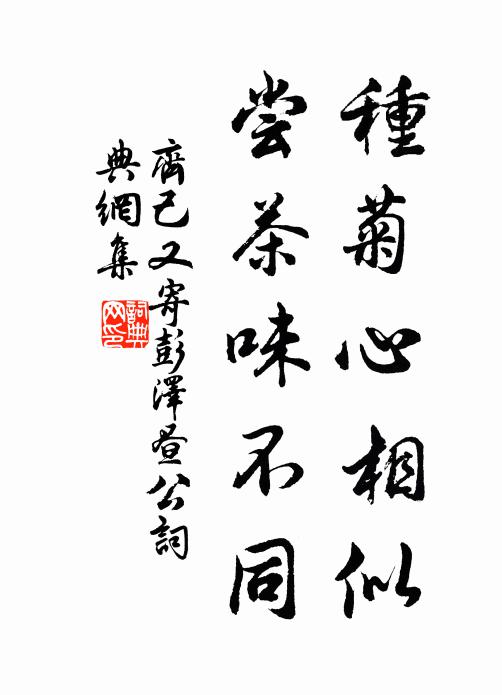 種菊心相似
尝茶味不同
齊己又寄彭澤晝公詞
典網集
詞典
网印